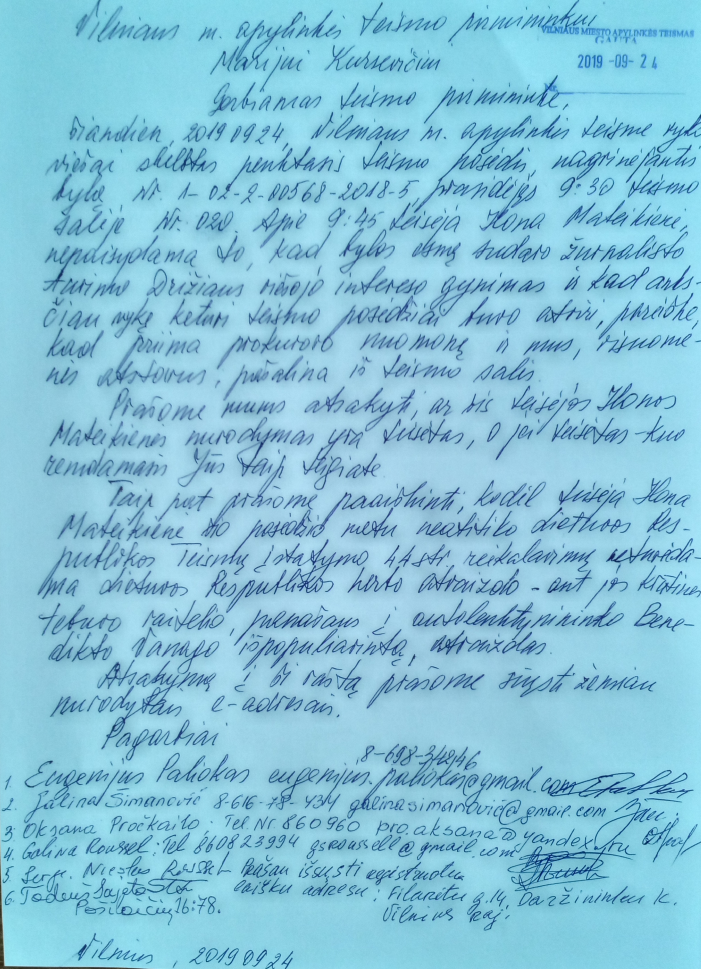 Vilniaus m. apylinkės teismo pirmininkui
VILNIAUS MIESTO APYLINKĖS TEISMAS
GAUTA
2019 -09- 24
Nr.
Marijui Kursevičiui
Gerbiamas teismo pirmininke,
Šiandien, 2019 09 24, Vilniaus m. apylinkės teisme vyko
viešai skelbtas penktasis teismo posėdis, nagrinėjantis
bylą Nr. 1-02-2-00568-2018-5, prasidėjęs 9:30 teismo
salėje Nr. 020. Apie 9:45 teisėja Ilona Mateikienė,
nepaisydama to, kad bylos esmę sudaro žurnalisto
Aurimo Drižiaus viešojo intereso gynimas ir kad anks-
čiau vykę keturi teismo posėdžiai buvo atviri, pareiškė,
kad priima prokuroro nuomonę ir mus, visuome-
nės atstovus, pašalina iš teismo salės.
Prašome mums atsakyti, ar šis teisėjos Ilonos
Mateikienės nurodymas yra teisėtas, o jei teisėtas - kuo
remdamasis Jūs taip teigiate.
Taip pat prašome paaiškinti, kodėl teisėja Ilona
Mateikienė šio posėdžio metu neatitiko Lietuvos Res-
publikos Teismų įstatymo 44 str. reikalavimų
Lietuvos Respublikos herbo atvaizdo - ant jos krūtinės
tebuvo raitelio, panašaus į autolenktynininko Bene-
dikto Vanago išpopuliarintą, atvaizdas.
Atsakymą į šį raštą prašome siųsti žemiau
nurodytais e-adresais.
Pagarbiai
8-698-34246
1. Eugenijus Paliokas eugenijus.paliokas@gmail.com
2. Galina Šimanovič 8-616-78-434 galinasimanovic@gmail.com
3. Oksana Pročkailo. Tel. Nr. 860960 pro.aksana@yandex.ru
4. Galina Roussel: Tel 860823994 gsroussell@gmail.com
5. Serge Nicolas Roussel Prašau išsiųsti registruotu
laišku adresu: Filaretų g. 14, Daržininkų k.
Vilniaus raj.
6. Tadeuš
16-78.
Vilnius, 2019 09 24